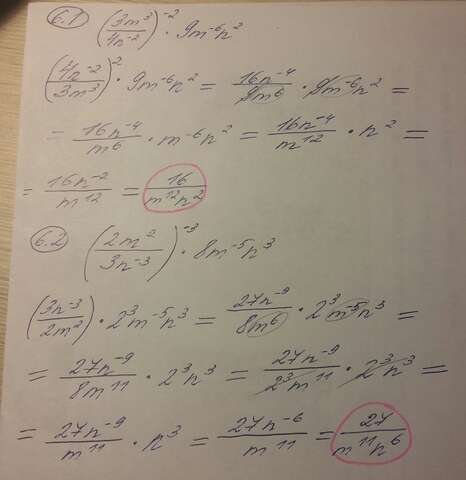 6.1 (3m³/4n⁻²)⁻² · 9m⁻⁶n²
(4n⁻²/3m³)² · 9m⁻⁶n² = 16n⁻⁴/9m⁶ · 9m⁻⁶n² =
= 16n⁻⁴/m⁶ · m⁻⁶n² = 16n⁻⁴/m¹² · n² =
= 16n⁻²/m¹² = 16/m¹²n²
6.2 (2m²/3n⁻³)⁻³ · 8m⁻⁵n³
(3n⁻³/2m²) · 2³m⁻⁵n³ = 27n⁻⁹/8m⁶ · 2³m⁻⁵n³ =
= 27n⁻⁹/8m¹¹ · 2³n³ = 27n⁻⁹/2³m¹¹ · 2³n³ =
= 27n⁻⁹/m¹¹ · n³ = 27n⁻⁶/m¹¹ = 27/m¹¹n⁶